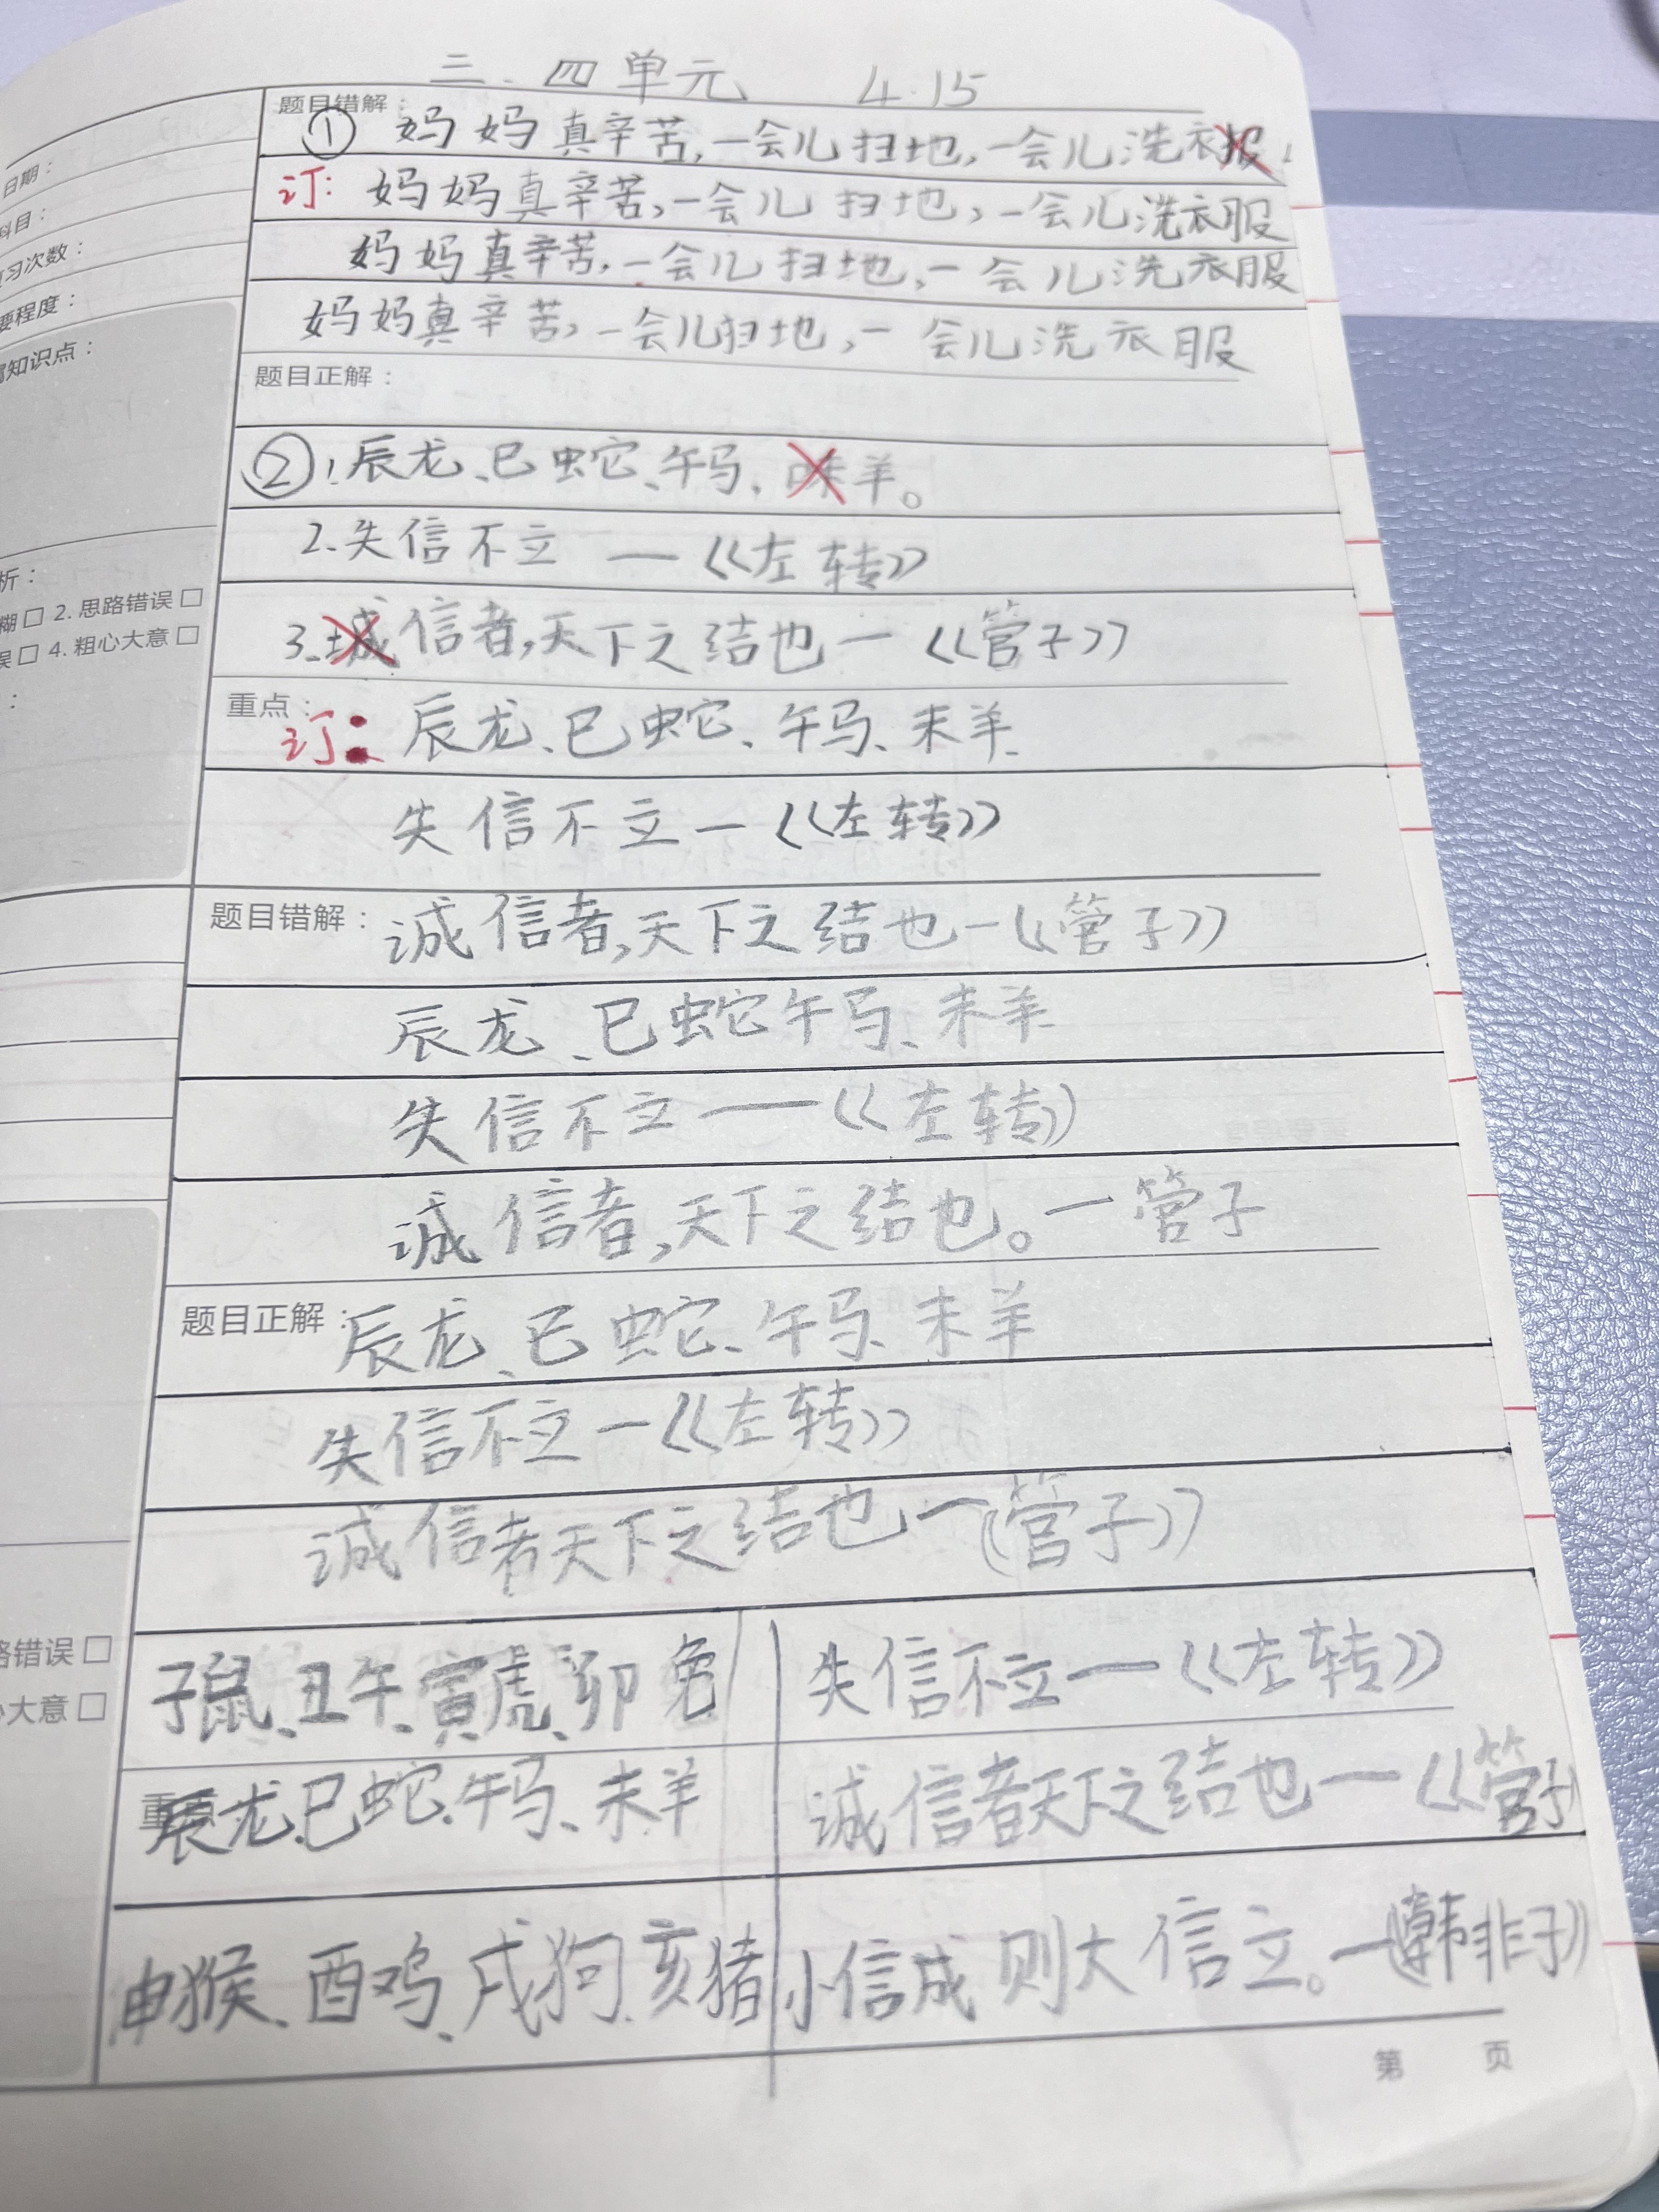 三、四单元 4.15
题目错解：
① 妈妈真辛苦,一会儿扫地,一会儿洗衣服
日期：
订: 妈妈真辛苦,一会儿扫地,一会儿洗衣服
科目：
妈妈真辛苦,一会儿扫地,一会儿洗衣服
习次数：
妈妈真辛苦,一会儿扫地,一会儿洗衣服
要程度：
知识点：
题目正解：
② 1.辰龙、巳蛇、午马、咪羊。
2.失信不立 — 《左转》
析：
糊□ 2. 思路错误□
3. 信者,天下之结也 — 《管子》
误□ 4. 粗心大意□
重点：
订: 辰龙、巳蛇、午马、未羊
失信不立 — 《左转》
题目错解：诚信者,天下之结也 — 《管子》
辰龙、巳蛇午马、未羊
失信不立 —— 《左转》
诚信者,天下之结也。— 管子
题目正解：辰龙、巳蛇、午马、未羊
失信不立 — 《左转》
诚信者天下之结也 — 《管子》
路错误□
心大意□
子鼠、丑午、寅虎、卯兔
失信不立 — 《左转》
重点
辰龙、巳蛇、午马、未羊
诚信者天下之结也 — 《管子
申猴、酉鸡、戌狗、亥猪
小信成则大信立。—《韩非子》
第 页